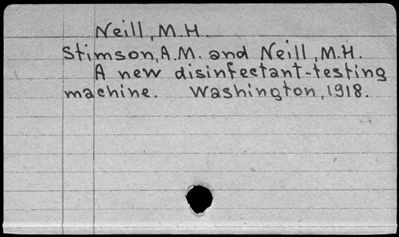 Neill, M.H.
Stimson, A.M. and Neill, M.H.
A new disinfectant-testing
machine. Washington, 1918.